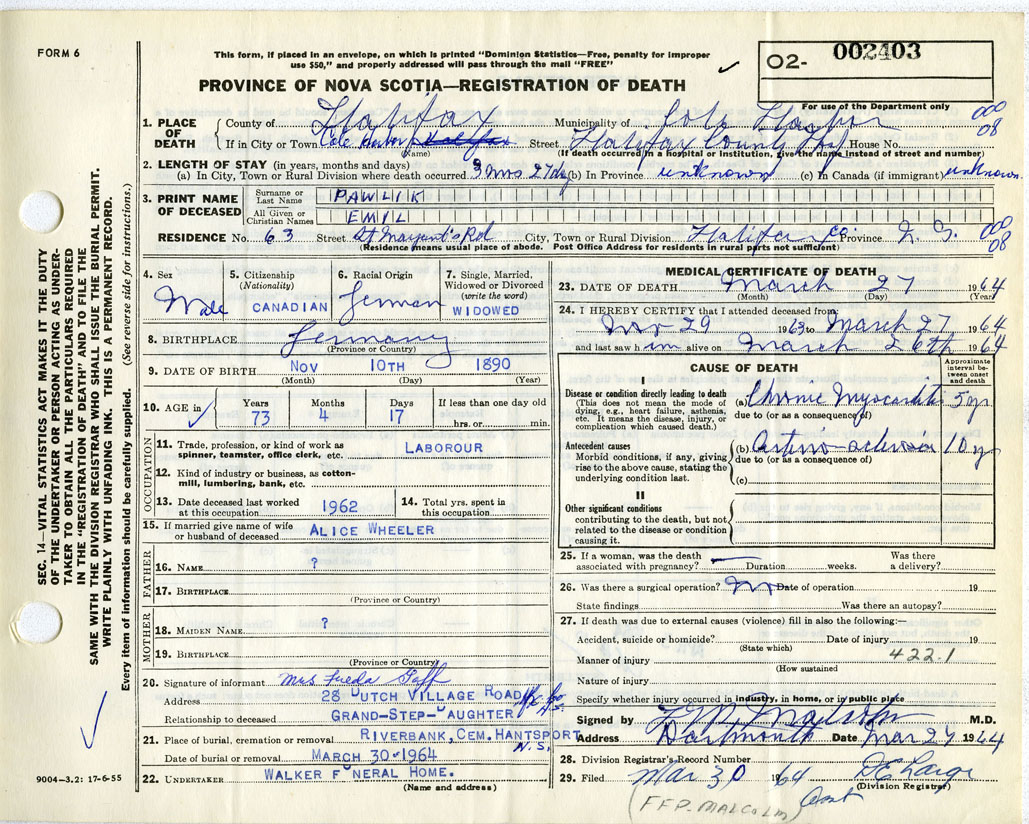 FORM 6
This form, if placed in an envelope, on which is printed "Dominion Statistics—Free, penalty for improper
use $50," and properly addressed will pass through the mail "FREE"
PROVINCE OF NOVA SCOTIA—REGISTRATION OF DEATH
O2- 002403
For use of the Department only
1. PLACE OF DEATH
County of Halifax Municipality of Cole Harbor 000 08
If in City or Town Cole Harbor Halifax Street Halifax County Hosp. House No.
(Name) (If death occurred in a hospital or institution, give the name instead of street and number)
2. LENGTH OF STAY (in years, months and days)
(a) In City, Town or Rural Division where death occurred 3 mos 27 dys (b) In Province unknown (c) In Canada (if immigrant) unknown
3. PRINT NAME OF DECEASED
Surname or Last Name PAWLIK
All Given or Christian Names EMIL
RESIDENCE No. 63 Street St Margaret's Rd City, Town or Rural Division Halifax Co. Province N. S. 000 08
(Residence means usual place of abode. Post Office Address for residents in rural parts not sufficient)
4. Sex
Male
5. Citizenship
(Nationality)
CANADIAN
6. Racial Origin
German
7. Single, Married,
Widowed or Divorced
(write the word)
WIDOWED
8. BIRTHPLACE Germany
(Province or Country)
9. DATE OF BIRTH Nov 10TH 1890
(Month) (Day) (Year)
10. AGE in
Years Months Days If less than one day old
73 4 17 hrs. or min.
OCCUPATION
11. Trade, profession, or kind of work as
spinner, teamster, office clerk, etc. LABOROUR
12. Kind of industry or business, as cotton-
mill, lumbering, bank, etc.
13. Date deceased last worked
at this occupation 1962
14. Total yrs. spent in
this occupation
15. If married give name of wife
or husband of deceased ALICE WHEELER
FATHER
16. NAME ?
17. BIRTHPLACE
(Province or Country)
MOTHER
18. MAIDEN NAME ?
19. BIRTHPLACE
(Province or Country)
20. Signature of informant Mrs Goff
Address 28 DUTCH VILLAGE ROAD
Relationship to deceased GRAND-STEP-DAUGHTER
21. Place of burial, cremation or removal RIVERBANK, CEM. HANTSPORT
N.S.
Date of burial or removal MARCH 30-1964
22. UNDERTAKER WALKER FUNERAL HOME.
(Name and address)
MEDICAL CERTIFICATE OF DEATH
23. DATE OF DEATH March 27 1964
(Month) (Day) (Year)
24. I HEREBY CERTIFY that I attended deceased from:
Nov 29 1963 to March 27 1964
and last saw him alive on March 26th 1964
CAUSE OF DEATH
Approximate interval between onset and death
I
Disease or condition directly leading to death
(This does not mean the mode of
dying, e.g., heart failure, asthenia,
etc. It means the disease, injury, or
complication which caused death.)
(a) Chronic Myocarditis 5 yr
due to (or as a consequence of)
Antecedent causes
Morbid conditions, if any, giving
rise to the above cause, stating the
underlying condition last.
(b) 10 yr
due to (or as a consequence of)
(c)
II
Other significant conditions
contributing to the death, but not
related to the disease or condition
causing it.
25. If a woman, was the death
associated with pregnancy? Duration weeks. Was there
a delivery?
26. Was there a surgical operation? no Date of operation 19
State findings Was there an autopsy?
27. If death was due to external causes (violence) fill in also the following:—
Accident, suicide or homicide? Date of injury 19
(State which)
422.1
Manner of injury
(How sustained
Nature of injury
Specify whether injury occurred in industry, in home, or in public place
Signed by M.D.
Address Dartmouth Date Mar 27 1964
28. Division Registrar's Record Number
29. Filed Mar 30 1964
(Division Registrar)
Asst
(F.F.P. MALCOLM)
9004—3.2: 17-6-55
SEC. 14—VITAL STATISTICS ACT MAKES IT THE DUTY
OF THE UNDERTAKER OR PERSON ACTING AS UNDER-
TAKER TO OBTAIN ALL THE PARTICULARS REQUIRED
IN THE "REGISTRATION OF DEATH" AND TO FILE THE
SAME WITH THE DIVISION REGISTRAR WHO SHALL ISSUE THE BURIAL PERMIT.
WRITE PLAINLY WITH UNFADING INK. THIS IS A PERMANENT RECORD.
Every item of information should be carefully supplied. (See reverse side for instructions.)